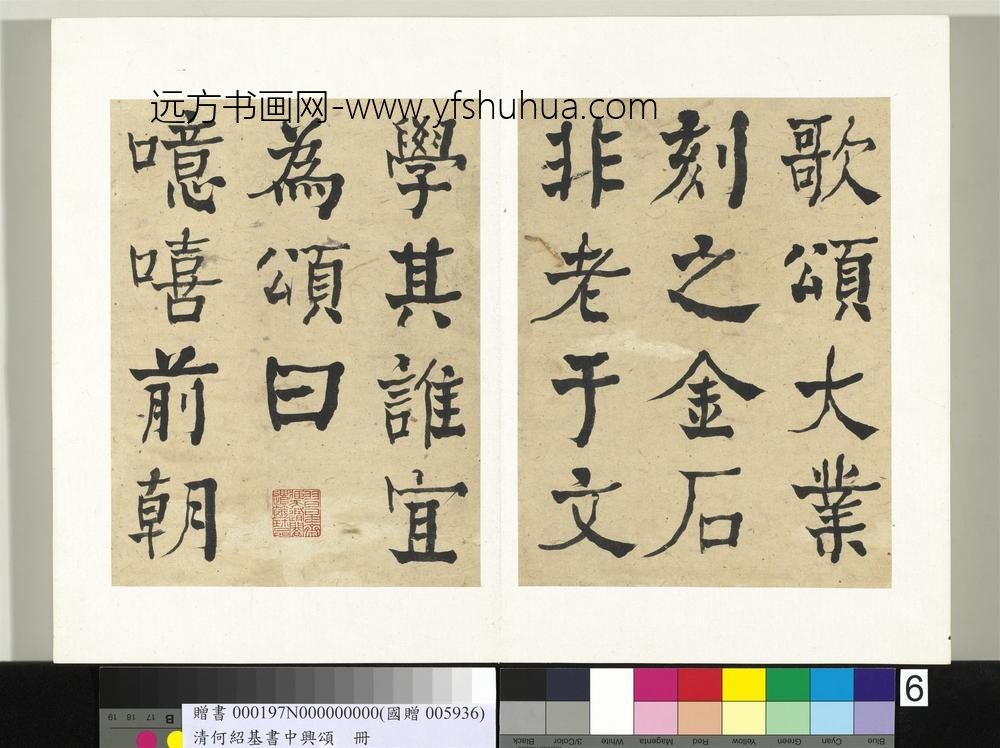 远方书画网-www.yfshuhua.com
歌頌大業
刻之金石
非老于文
學其誰宜
為頌曰
噫嘻前朝
贈書 000197N000000000(國贈 005936)
清何紹基書中興頌 冊
6
19 18 17 B
Black 3/Color White Magenta Red Yellow Green Cyan Blue